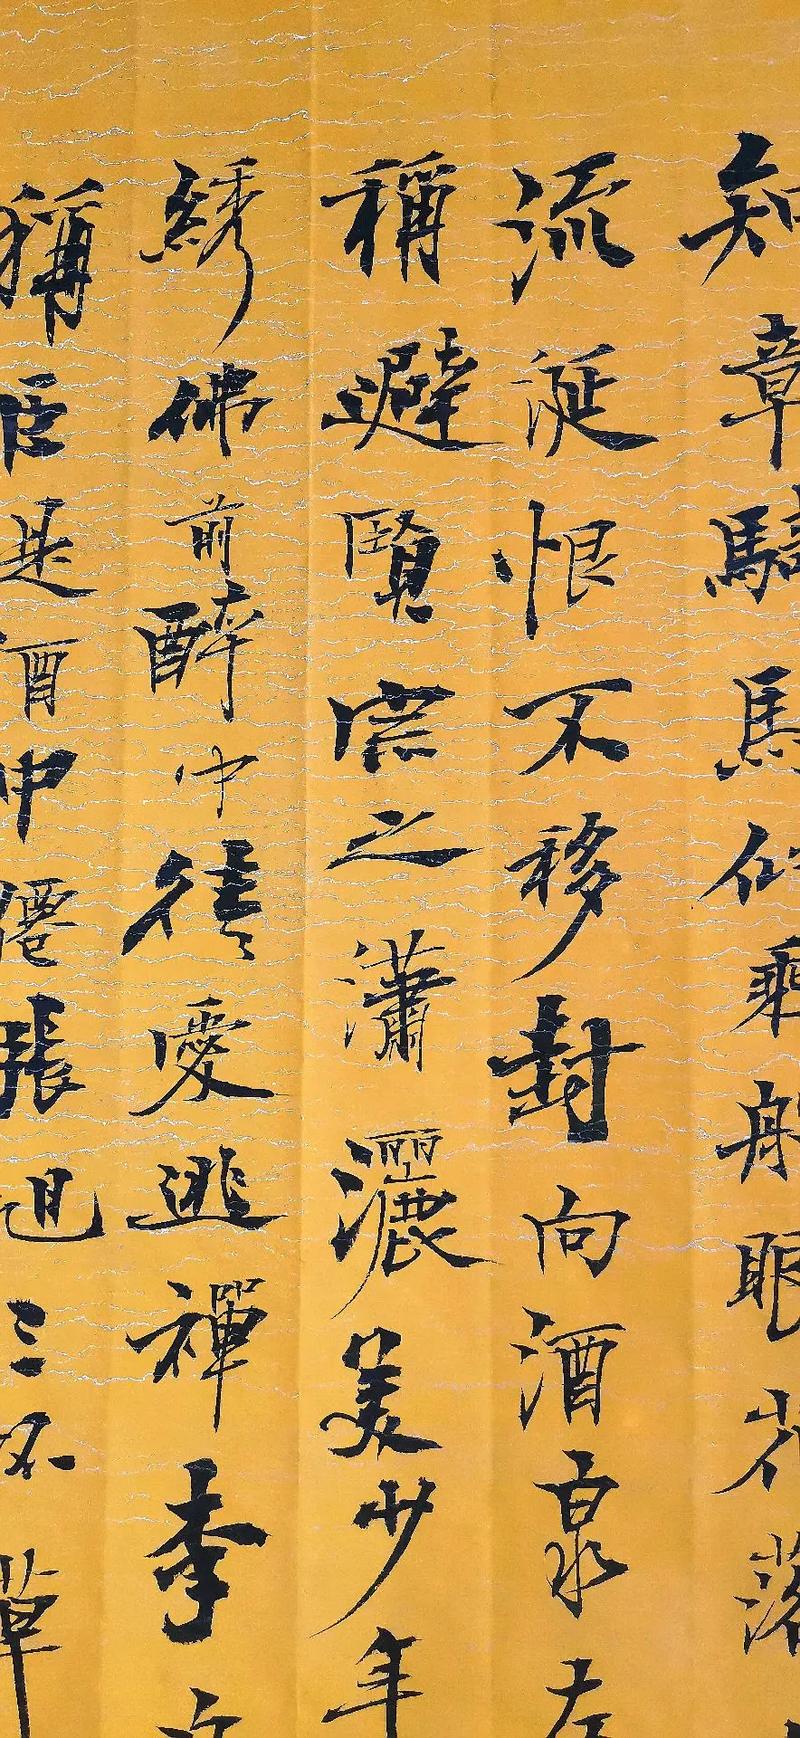 知章騎馬似乘船眼花落
流涎恨不移封向酒泉左
稱避賢宗之瀟灑美少年
綉佛前醉中往愛逃禪李
稱臣是酒中僊張旭三杯草